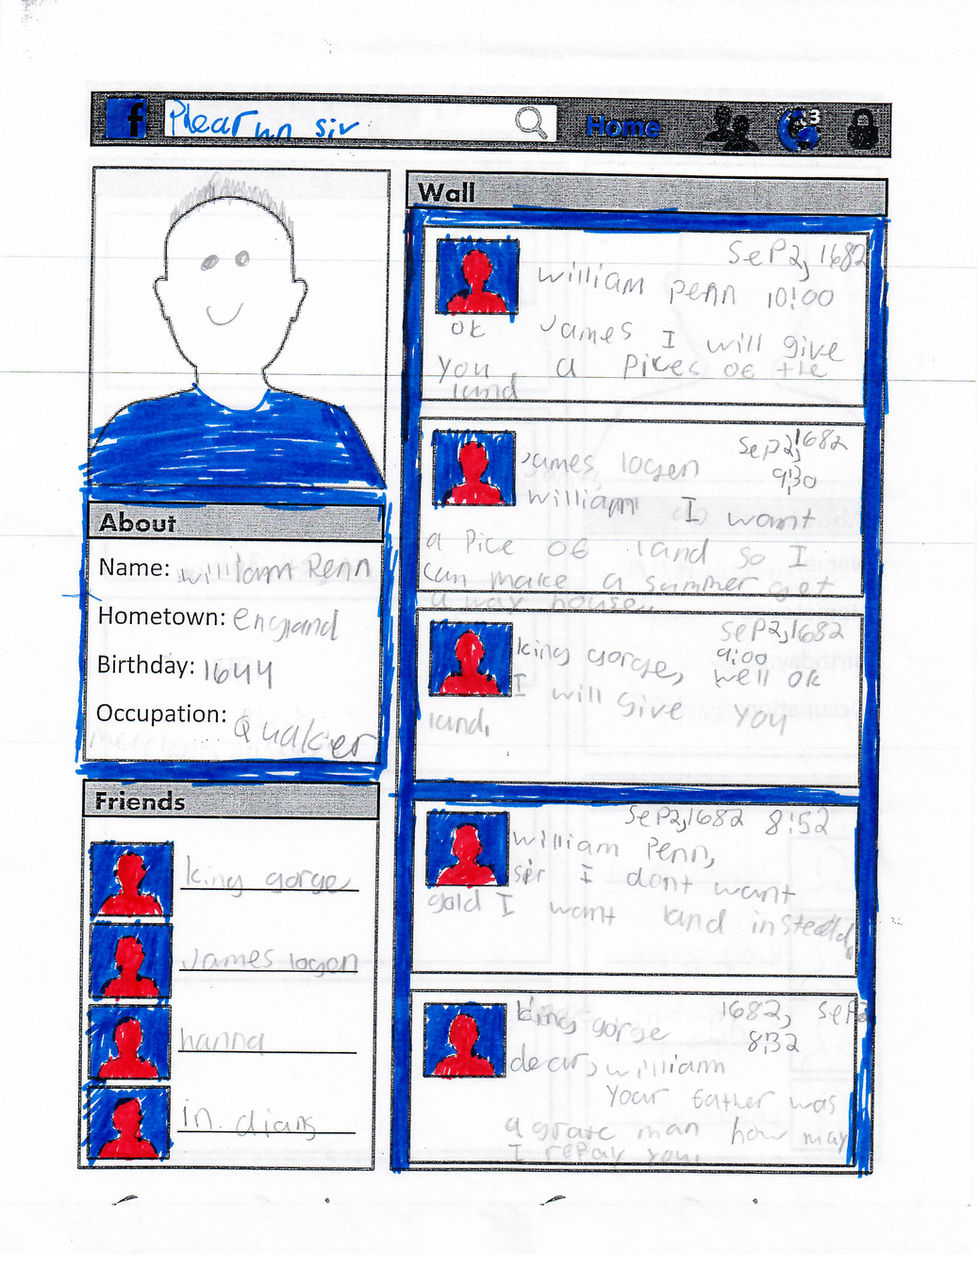 f
sir
Home
3
Wall
SeP 2, 1682
William Penn 10:00
ok James I will give
you, a Pices oe the
land
SeP 2, 1682
James logen 9:30
William I want
a Pice oe land so I
can make a summer get
a way house.
SeP 2, 1682
king gorge, 9:00
well ok
I will give you
land.
SeP 2, 1682 8:52
William Penn,
sir I dont want
gold I want land instedd.
king gorge 1682, SeP 2
8:32
dear, william
Your father was
a grate man how may
I repay you.
About
Name: William Penn
Hometown: England
Birthday: 1644
Occupation: Quaker
Friends
king gorge
James logen
hanna
in dians